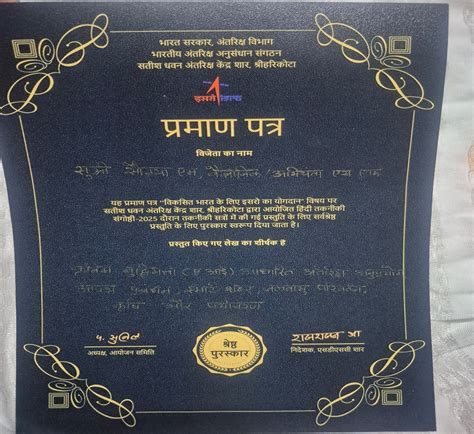 भारत सरकार, अंतरिक्ष विभाग
भारतीय अंतरिक्ष अनुसंधान संगठन
सतीश धवन अंतरिक्ष केंद्र शार, श्रीहरिकोटा
इसरो isro
प्रमाण पत्र
विजेता का नाम
सुश्री सौम्या एम, वैज्ञानिक/अभियंता एस
यह प्रमाण पत्र "विकसित भारत के लिए इसरो का योगदान" विषय पर
सतीश धवन अंतरिक्ष केंद्र शार, श्रीहरिकोटा द्वारा आयोजित हिंदी तकनीकी
संगोष्ठी-2025 दौरान तकनीकी सत्रों में की गई प्रस्तुति के लिए सर्वश्रेष्ठ
प्रस्तुति के लिए पुरस्कार स्वरूप दिया जाता है।
प्रस्तुत किए गए लेख का शीर्षक है
कृत्रिम बुद्धिमत्ता (ए आई) आधारित अंतरिक्ष अनुप्रयोग
आपदा प्रबंधन, स्मार्ट शहर, जलवायु परिवर्तन,
कृषि और पर्यावरण
अध्यक्ष, आयोजन समिति
श्रेष्ठ
पुरस्कार
निदेशक, एसडीएससी शार